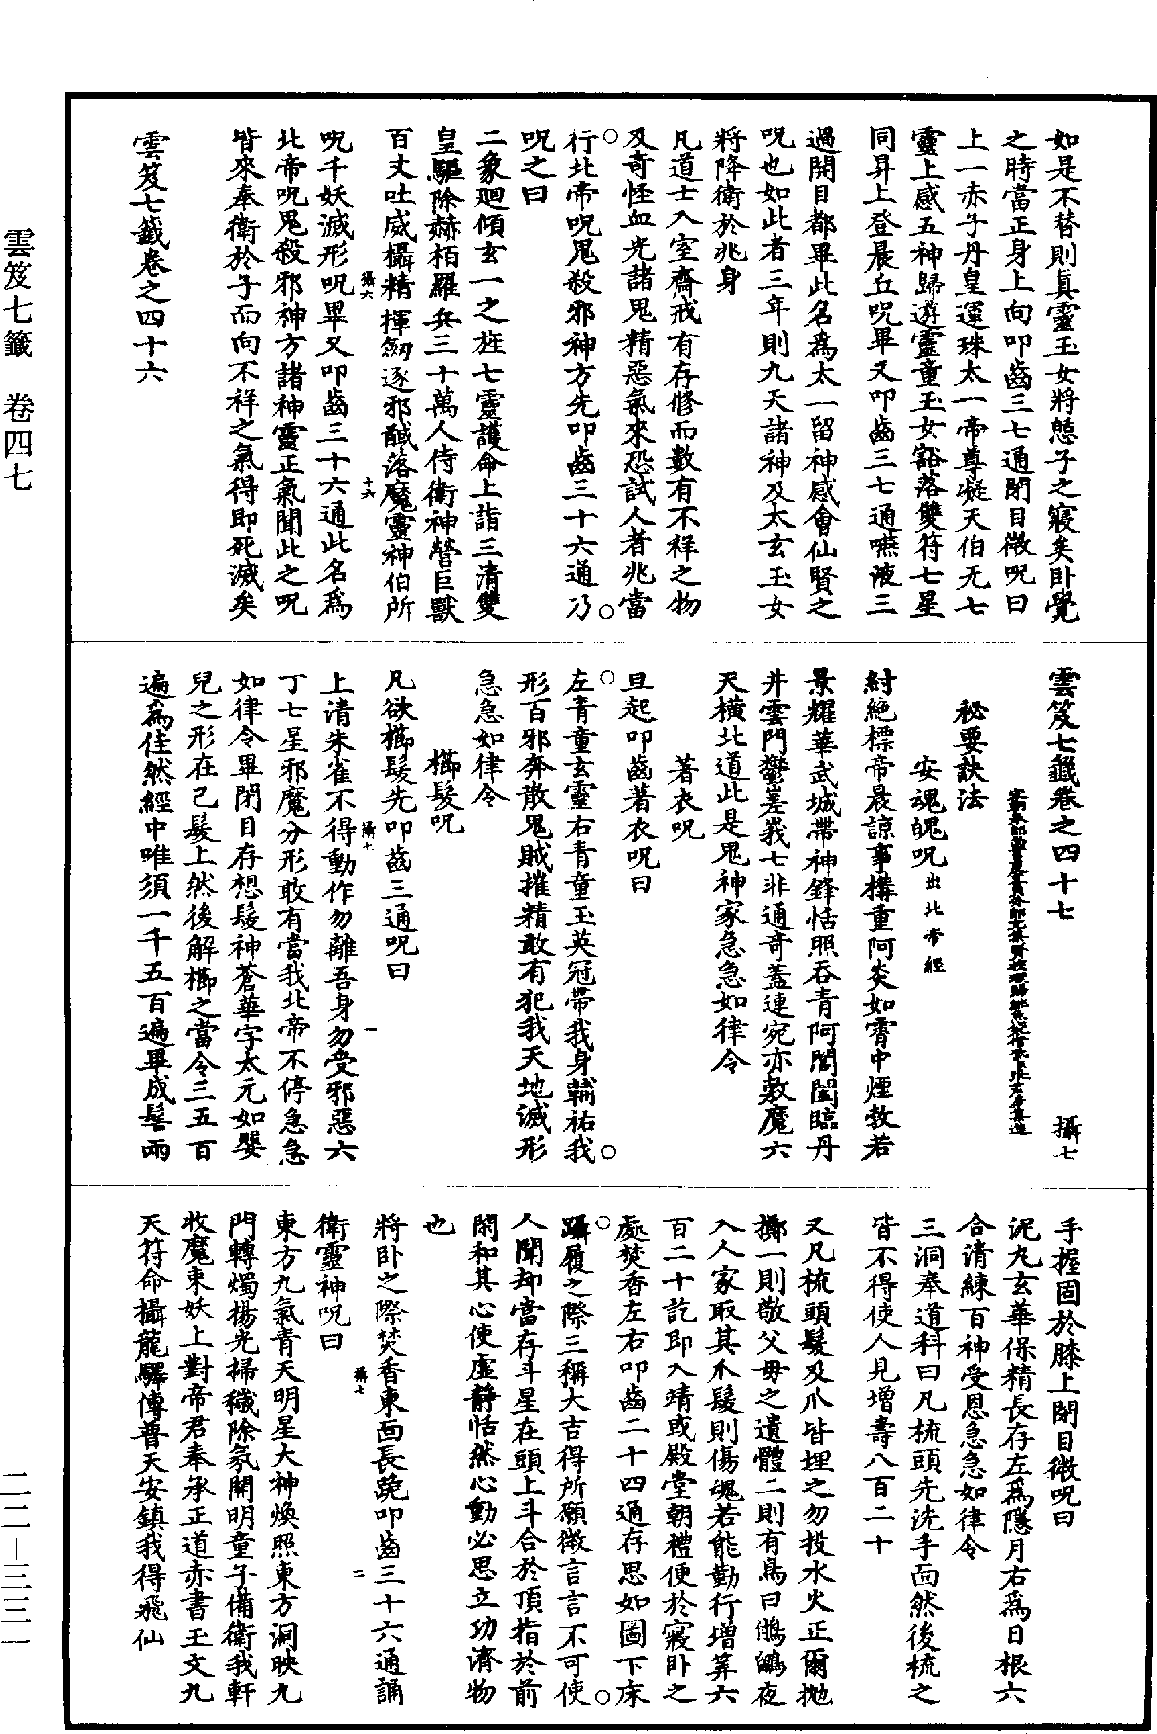 雲笈七籤　卷四七
二二—三三一
如是不替則真靈玉女將愬子之寢矣卧覺
之時當正身上向叩齒三七通閉目微呪曰
上一赤子丹皇運珠太一帝尊凝天伯无七
靈上感五神歸遊靈童玉女豁落雙符七星
同昇上登晨丘呪畢又叩齒三七通嚥液三
過開目都畢此名為太一留神感會仙賢之
呪也如此者三年則九天諸神及太玄玉女
將降衛於兆身
凡道士入室齋戒有存修而數有不祥之物
及奇怪血光諸鬼精惡氣來恐試人者兆當
行北帝呪鬼殺邪神方先叩齒三十六通乃
呪之曰
二象廻傾玄一之旌七靈護命上詣三清雙
皇驅除赫柏羅兵三十萬人侍衛神營巨獸
百丈吐威攝精揮劒逐邪馘落魔靈神伯所
攝六
十六
呪千妖滅形呪畢又叩齒三十六通此名為
北帝呪鬼殺邪神方諸神靈正氣聞此之呪
皆來奉衛於子而向不祥之氣得即死滅矣
雲笈七籤卷之四十六
雲笈七籤卷之四十七
攝七
秘要訣法
安魂魄呪出北帝經
紂絕標帝晨諒事構重阿炎如霄中煙敎若
景耀華武城帶神鋒恬照吞青阿閶闔臨丹
井雲門鬱嵳峩七非通奇蓋連宛亦敷魔六
天橫北道此是鬼神家急急如律令
著衣呪
旦起叩齒著衣呪曰
左青童玄靈右青童玉英冠帶我身輔祐我
形百邪奔散鬼賊摧精敢有犯我天地滅形
急急如律令
櫛髮呪
凡欲櫛髮先叩齒三通呪曰
攝七
一
上清朱雀不得動作勿離吾身勿受邪惡六
丁七星邪魔分形敢有當我北帝不停急急
如律令畢閉目存想髮神蒼華字太元如嬰
兒之形在己髮上然後解櫛之當令三五百
遍為佳然經中唯須一千五百遍畢成髻兩
手握固於膝上閉目微呪曰
泥丸玄華保精長存左為隱月右為日根六
合清練百神受恩急急如律令
三洞奉道科曰凡梳頭先洗手面然後梳之
皆不得使人見增壽八百二十
又凡梳頭髮及爪皆埋之勿投水火正爾拋
擲一則敬父母之遺體二則有鳥曰鵂鶹夜
入人家取其爪髮則傷魂若能勤行增筭六
百二十訖即入靖或殿堂朝禮便於寢卧之
處焚香左右叩齒二十四通存思如圖下床
躡履之際三稱大吉得所願微言言不可使
人聞却當存斗星在頭上斗合於頂指於前
閑和其心使虛靜恬然心動必思立功濟物
也
將卧之際焚香東面長跪叩齒三十六通誦
攝七
二
衛靈神呪曰
東方九氣青天明星大神煥照東方洞映九
門轉燭揚光掃穢除氛開明童子備衛我軒
收魔束妖上對帝君奉承正道赤書玉文九
天符命攝龍驛傳普天安鎮我得飛仙